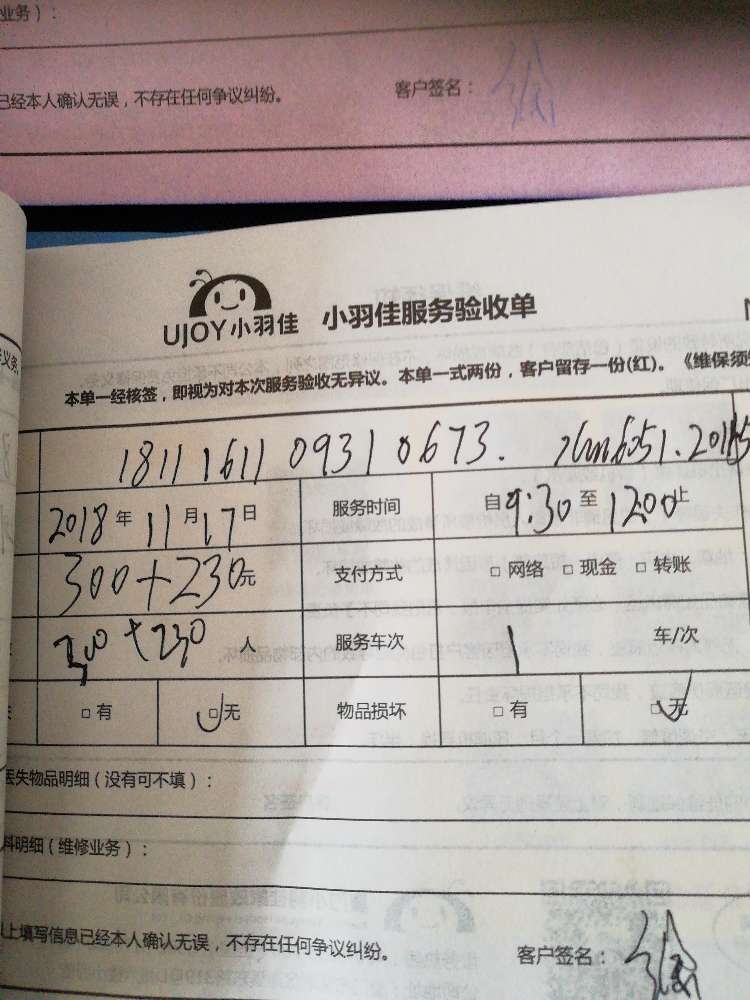 业务）：
已经本人确认无误，不存在任何争议纠纷。 客户签名：
UJOY小羽佳 小羽佳服务验收单
本单一经核签，即视为对本次服务验收无异议。本单一式两份，客户留存一份(红)。《维保须知
1811161109310673.
2018年11月17日 服务时间 自9:30至1200止
300+230元 支付方式 □网络 □现金 □转账
300+230人 服务车次 1 车/次
□有 □无 物品损坏 □有 □无
丢失物品明细（没有可不填）：
料明细（维修业务）：
以上填写信息已经本人确认无误，不存在任何争议纠纷。 客户签名：